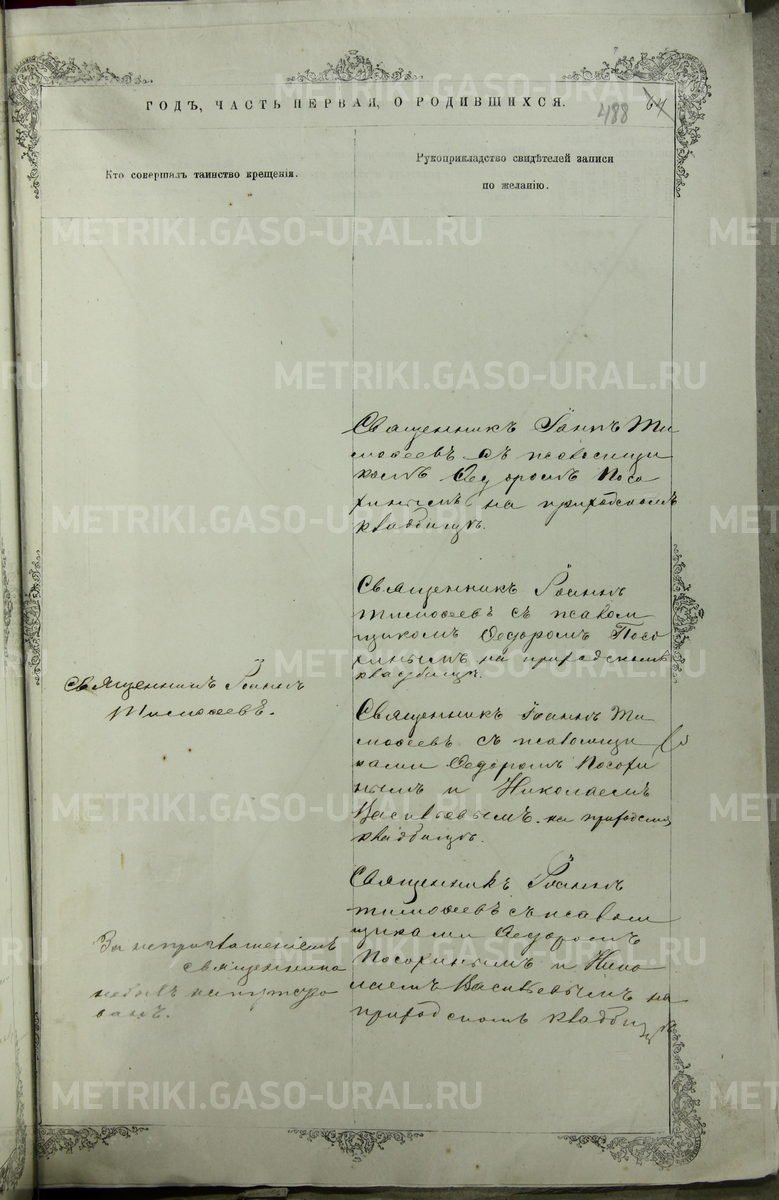 ГОДЪ, ЧАСТЬ ПЕРВАЯ, О РОДИВШИХСЯ.
488
64
Кто совершалъ таинство крещенія.
Рукоприкладство свидѣтелей записи
по желанію.
METRIKI.GASO-URAL.RU
METRIKI.GASO-URAL.RU
Священникъ Іоаннъ Ти
моѳеевъ съ псаломщи
комъ Ѳедоромъ Посо
хинымъ на приходскомъ
кладбищѣ.
METRIKI.GASO-URAL.RU
Священникъ Іоаннъ
Тимоѳеевъ съ псалом
щикомъ Ѳедоромъ Посо
хинымъ на приходскомъ
кладбищѣ.
METRIKI.GASO-URAL.RU
Священникъ Іоаннъ
Тимоѳеевъ.
Священникъ Іоаннъ Ти
моѳеевъ съ псаломщи
ками Ѳедоромъ Посохи
нымъ и Николаемъ
Васильевымъ на приходском
кладбищѣ.
METRIKI.GASO-URAL.RU
Священникъ Іоаннъ
Тимоѳеевъ съ псалом
щиками Ѳедоромъ
Посохинымъ и Нико
лаемъ Васильевымъ на
приходскомъ кладбищѣ
За неприглашеніемъ
священника
небылъ напутство
ванъ.
METRIKI.GASO-URAL.RU
METRIKI.GASO-URAL.RU